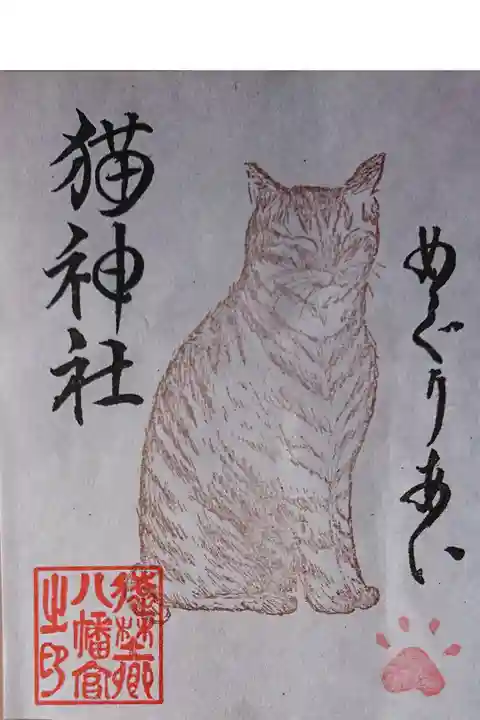 めぐりあい
猫神社
八幡宮
之印